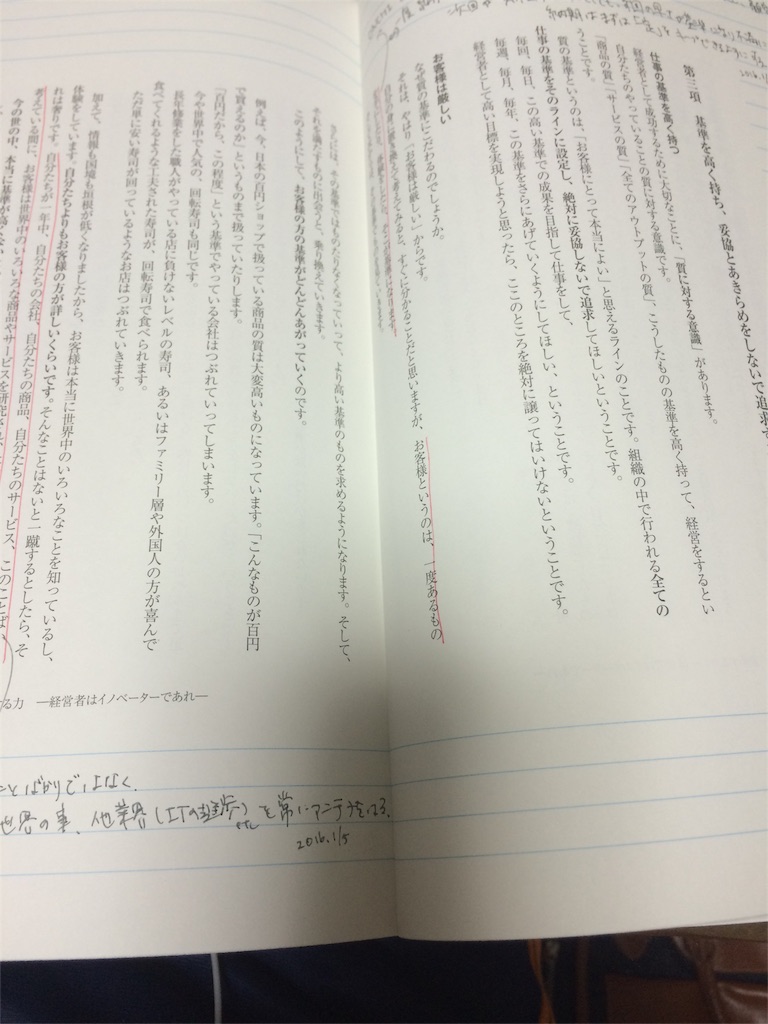 第三項　基準を高く持ち、妥協とあきらめをしないで追求す
仕事の基準を高く持つ
経営者として成功するために大切なことに、「質に対する意識」があります。
自分たちのやっていることの質に対する意識です。
「商品の質」「サービスの質」「全てのアウトプットの質」、こうしたものの基準を高く持って、経営をするとい
うことです。
質の基準というのは、「お客様にとって本当によい」と思えるラインのことです。組織の中で行われる全ての
仕事の基準をそのラインに設定し、絶対に妥協しないで追求してほしいということです。
毎回、毎日、この高い基準での成果を目指して仕事をして、
毎週、毎月、毎年、この基準をさらにあげていくようにしてほしい、ということです。
経営者として高い目標を実現しようと思ったら、ここのところを絶対に譲ってはいけないということです。
お客様は厳しい
なぜ質の基準にこだわるのでしょうか。
それは、やはり「お客様は厳しい」からです。
自分の身に置き換えて考えてみると、すぐに分かることだと思いますが、お客様というのは、一度あるもの
さらには、その基準ではものたりなくなっていって、より高い基準のものを求めるようになります。そして、
それを満たすものに出会うと、乗り換えていきます。
このようにして、お客様の方の基準がどんどんあがっていくのです。
例えば、今、日本の百円ショップで扱っている商品の質は大変高いものになっています。「こんなものが百円
で買えるのか」というものまで扱っていたりします。
「百円だから、この程度」という基準でやっている会社はつぶれていってしまいます。
今や世界中で人気の、回転寿司も同じです。
長年修業をした職人がやっている店に負けないレベルの寿司、あるいはファミリー層や外国人の方が喜んで
食べてくれるような工夫された寿司が、回転寿司で食べられます。
ただ単に安い寿司が回っているようなお店はつぶれていきます。
加えて、情報も国境も垣根が低くなりましたから、お客様は本当に世界中のいろいろなことを知っているし、
体験をしています。自分たちよりもお客様の方が詳しいくらいです。そんなことはないと一蹴するとしたら、そ
れは奢りです。自分たちが一年中、自分たちの会社、自分たちの商品、自分たちのサービス、このことばか
考えている間に、お客様は世界中のいろいろな商品やサービスを研究され
今の世の中、本当に基準が高くない
る力　―経営者はイノベーターであれ―
ことばかりではなく、
世界の事、他業界（ITの進歩）etc を常にアンテナをはる。
2016.1/5